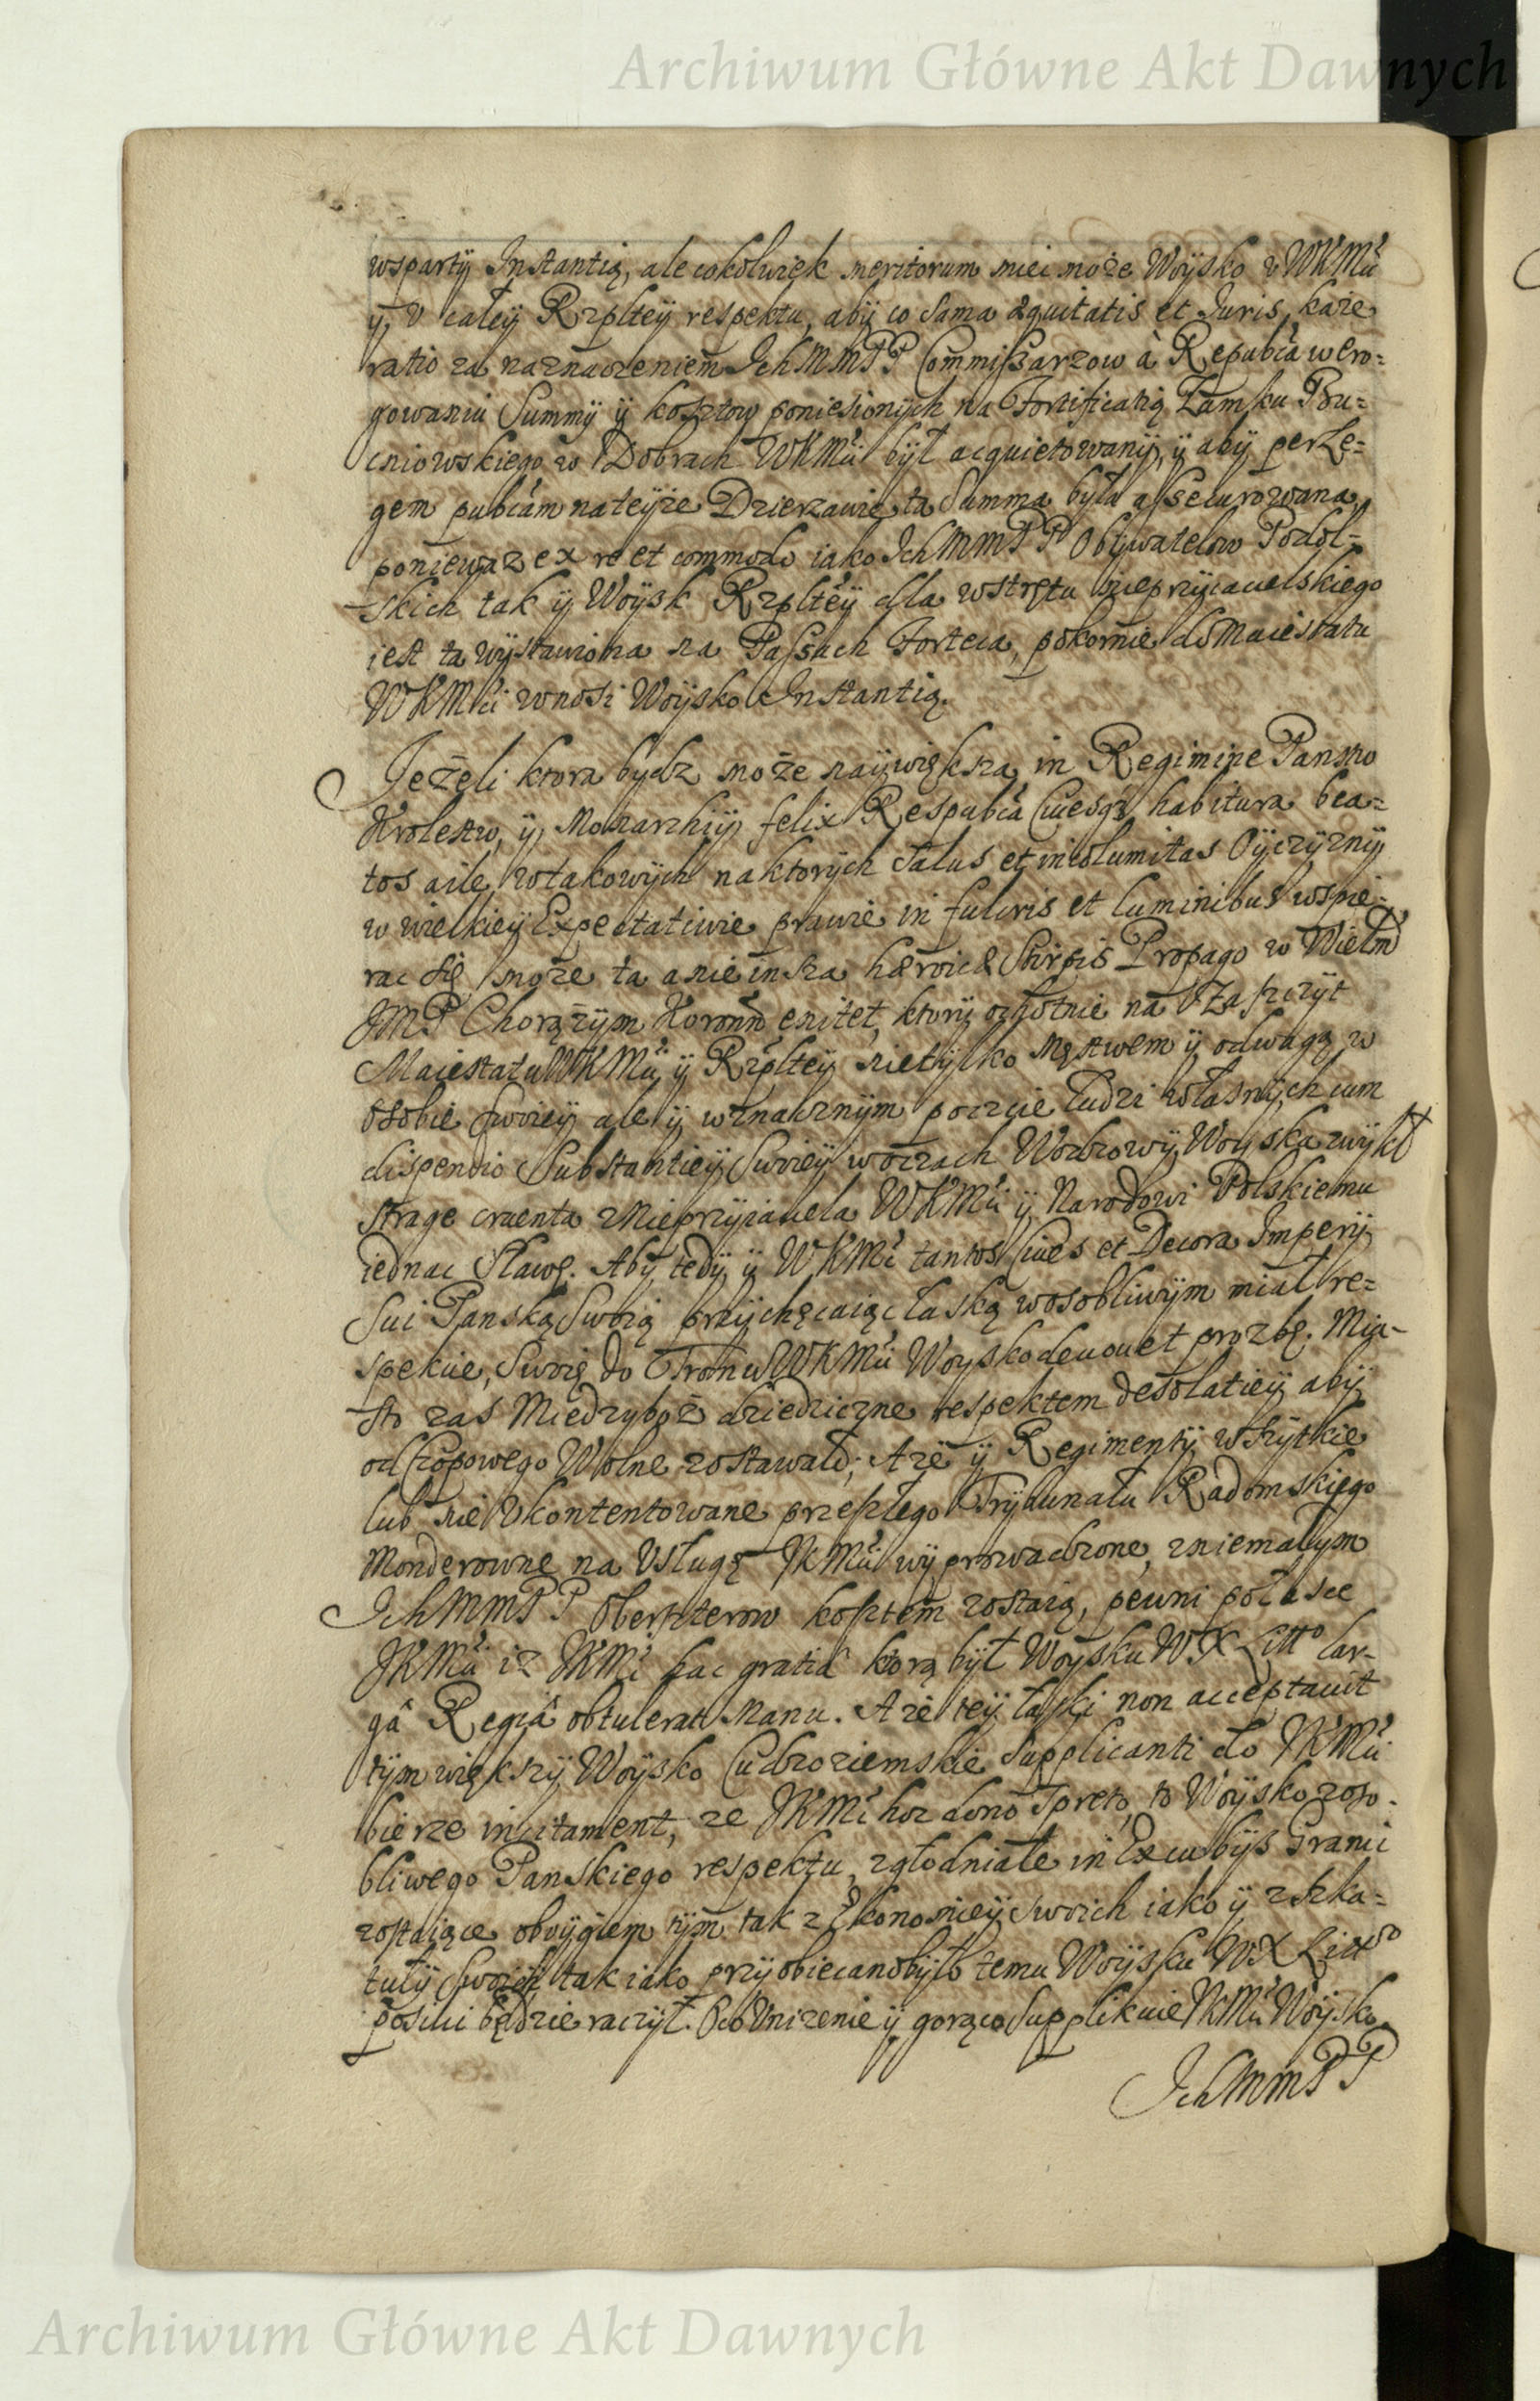 Archiwum Główne Akt Dawnych
wsparty Instantią, ale cokolwiek meritorum miec może Woysko v WKMci
y v całey Rzpltey respektu, aby co sama æquitatis et Iuris każe
ratio za naznaczeniem IchMMPP Commissarzow à Repubca w ero=
gowaniu Summy y kosztow poniesionych na Fortificatią Zamku Bu=
cniowskiego w Dobrach WKMci był acquietowany, y aby per Le=
gem pubcam na teyże Dzierzawie ta Summa była assecurowana,
poniewaz ex re et commodo iako IchMMPP Obywatelow Podol=
skich tak y Woysk Rzpltey dla wstrętu nieprzyiacielskiego
iest ta wystawiona na Passach Forteca, pokornie do Maiestatu
WKMci wnosi Woysko Instantią.
Jeżeli ktora bydz może naywiększa in Regimine Panstw
Krolestw, y Monarchiy felix Respubca Cives habitura bea=
tos a ile w takowych na ktorych salus et incolumitas Oyczyzny
w wielkiey Expectativie prawie in fulcris et luminibus wspie=
rac się może ta a nie insza heroicæ Stirpis Propago w Wielm
JMP Chorązym Koronn enitet, ktory ochotnie na Zaszczyt
Maiestatu WKMci y Rzpltey nietylko męstwem y odwagą w
osobie swoiey ale y w znacznym poczcie ludzi własnych cum
dispendio Substantiey swoiey w oczach Wodzowy Woyska zwykł
strage cruenta z Nieprzyiaciela WKMci y Narodowi Polskiemu
iednac Sławę. Aby tedy y WKMc tantos Cives et Decora Imperij
Sui Panską Swoią przychęcaiąc łaską w osobliwym miał re=
spekcie, Swoię do Tronu WKMci Woysko devovet prozbę. Mia=
sto zas Miedzyboż dziedziczne respektem desolatiey aby
od Czopowego Wolne zostawało; A że y Regimenty wszytkie
lub nie vkontentowane przeszłego Trybunału Radomskiego
Monderowne na Vsługę JKMci wyprowadzone, z niemałym
IchMMPP Obersterow kosztem zostaią, pewni po łasce
JKMci iz JKMc hac gratia ktorą był Woysku WX Litto lar=
gâ Regiâ obtulerat manu. A że tey łaski non acceptavit
tym większy Woysko Cudzoziemskie Supplicanti do JKMci
bierze incitament, ze JKMc hoc dono spreto, to Woysko zoso=
bliwego Panskiego respektu, zgłodniałe in Excubijs Granic
zostaiące oboygiem tym tak z Ekonomiey swoich iako y z szka=
tuły swoiey tak iako przyobiecano było temu Woysku WX Litto
posilic będzie raczył. O co vnizenie y gorąco Supplikuie JKMci Woysko.
IchMMPP
Archiwum Główne Akt Dawnych